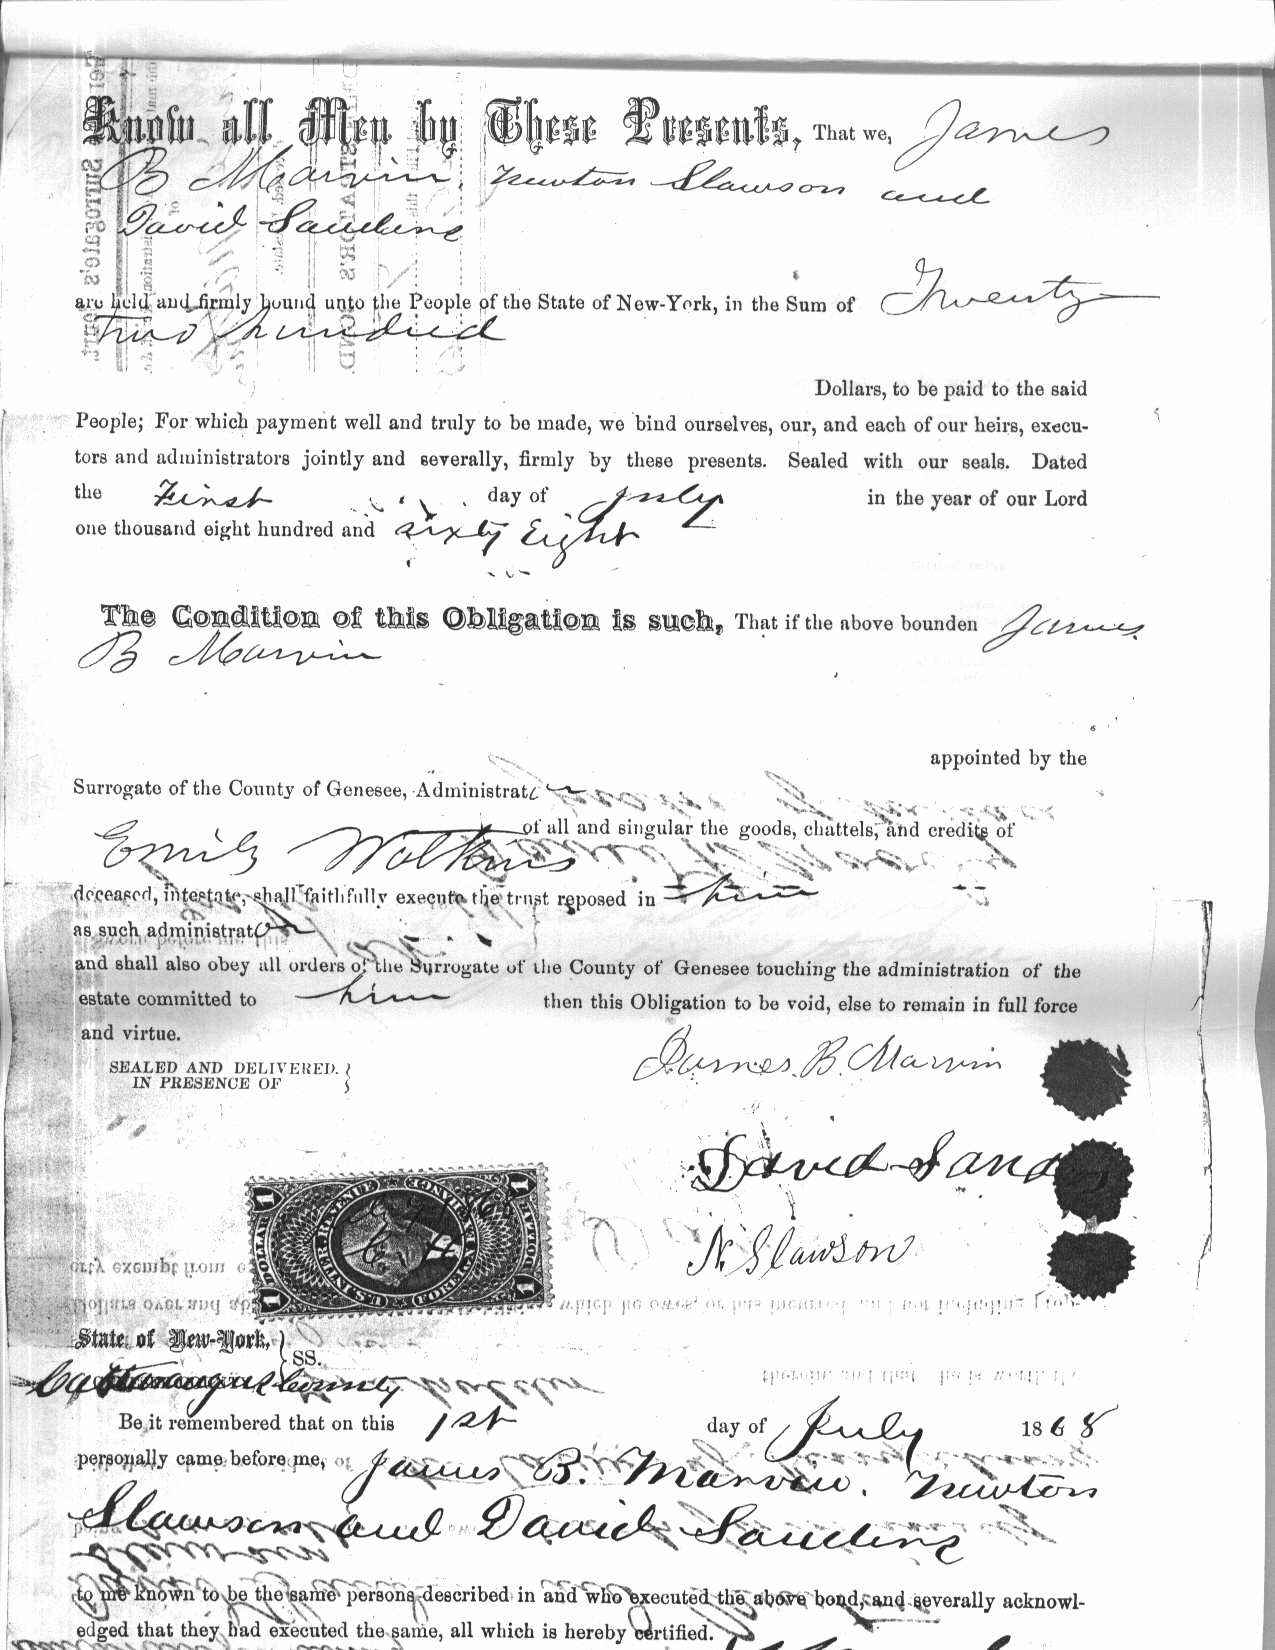 Know all Men by These Presents, That we, James
B Marvin. Newton Slawson and
David Sanders
are held and firmly bound unto the People of the State of New-York, in the Sum of Twenty
two hundred
Dollars, to be paid to the said
People; For which payment well and truly to be made, we bind ourselves, our, and each of our heirs, execu-
tors and administrators jointly and severally, firmly by these presents. Sealed with our seals. Dated
the First day of July in the year of our Lord
one thousand eight hundred and sixty Eight
The Condition of this Obligation is such, That if the above bounden James
B Marvin
appointed by the
Surrogate of the County of Genesee, Administrator
of all and singular the goods, chattels, and credits of
Emily Watkins
deceased, intestate, shall faithfully execute the trust reposed in him
as such administrator
and shall also obey all orders of the Surrogate of the County of Genesee touching the administration of the
estate committed to him then this Obligation to be void, else to remain in full force
and virtue.
SEALED AND DELIVERED.
IN PRESENCE OF
James. B. Marvin
David Sanders
N. Slawson
U.S. INTER. REVENUE
FOREIGN EXCHANGE
1 DOLLAR 1
State of New-York,
SS.
Cattaraugus County
Be it remembered that on this 1st day of July 1868
personally came before me, James B. Marvin. Newton
Slawson and David Sanders
to me known to be the same persons described in and who executed the above bond, and severally acknowl-
edged that they had executed the same, all which is hereby certified.